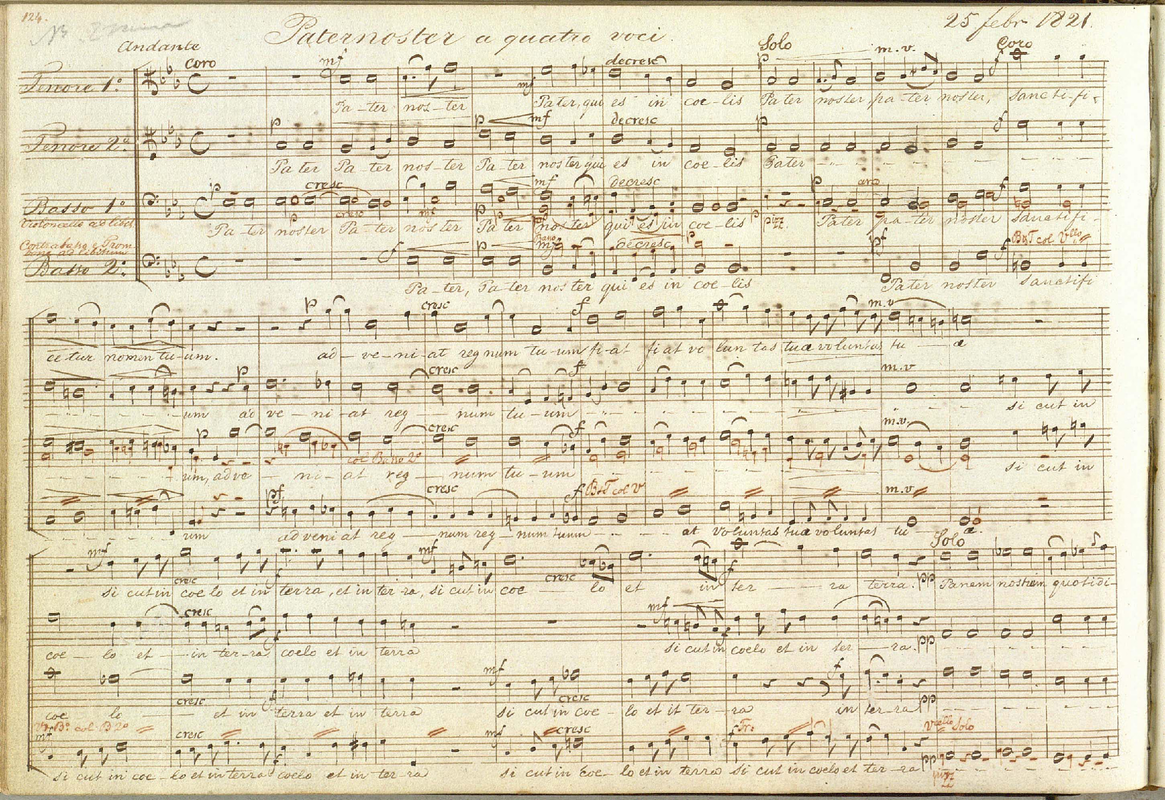 124.
25 febr 1821.
Paternoster a quatro voci.
Andante
coro mf decresc Solo m.v. f Coro
Tenore 1º
Pa-ter nos-ter Pater, qui es in coe-lis Pater noster pa-ter noster, sancti-fi-
p p mf decresc p f
Tenore 2º
Pater Pa-ter nos-ter Pa-ter noster qui es in coe-lis Pater
p cresc p mf decresc p
Basso 1º
Violoncello ad libit
Pa-ter noster Pa-ter nos-ter Pa-ter noster qui es in coe-lis pizz. Pater pa-ter noster sanctifi-
Contrabasso e Trom
bone ad libitum
f mf decresc B e T col Vllo
Basso 2º
Pa-ter, Pa-ter noster qui es in coe-lis Pater noster sanctifi
p cresc f m.v.
ce-tur nomen tu-um. ad-ve-ni-at regnum tu-um fi-at fi at vo lun tas tua voluntas tu-a
p cresc f m.v.
um ad ve-ni-at reg-num tu-um si cut in
p cresc f m.v.
col Basso 2º
um, adve-ni-at reg-num tu-um si cut in
pf cresc f B e T col V m.v.
um adveni at reg-num reg-num tuum at voluntas tua voluntas tu-a.
mf cresc mf cresc f Solo
si cut in coe lo et in terra, et in ter-ra, si cut in coe-lo et in ter-ra terra. pp Panem nostrum quotidi-
cresc mf
coe-lo et-in ter-ra coelo et in terra si cut in coelo et in ter-ra. pp
cresc mf cresc f
coe lo-et in terra et in terra si cut in coe-lo et it ter-ra in ter-ra pp
col B 2º cresc mf cresc Tr: Vcello Solo
si cut in coe-lo et in terra coelo et in ter-ra si cut in coe-lo et in terra si cut in coelo et ter-ra pp
pizz